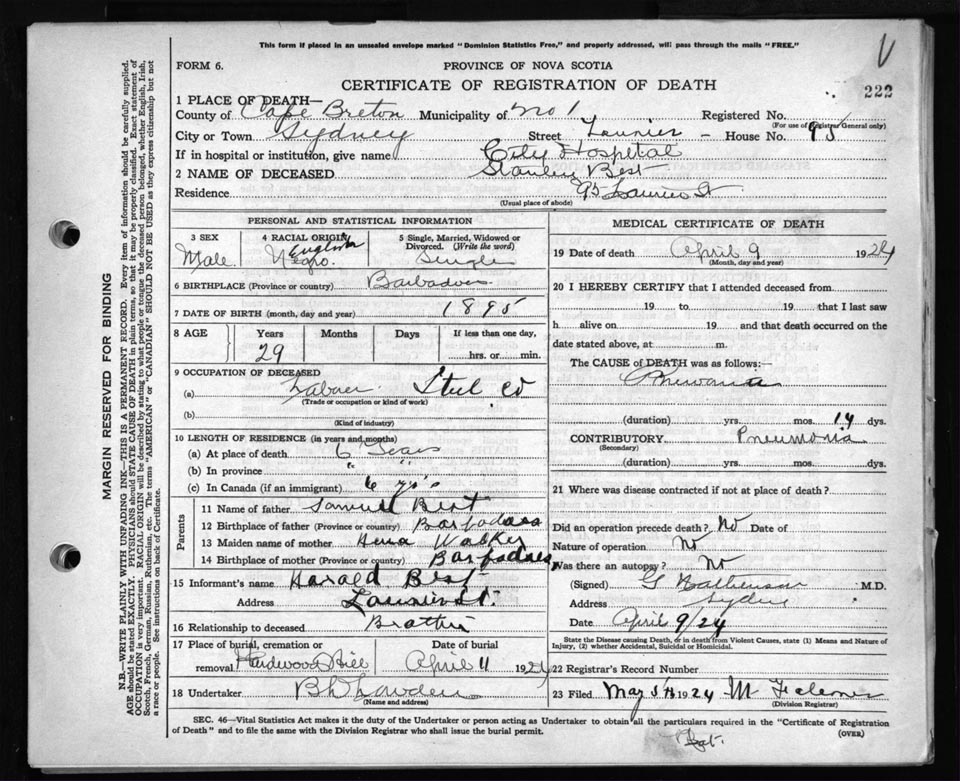 This form if placed in an unsealed envelope marked "Dominion Statistics Free," and properly addressed, will pass through the mails "FREE."
V
FORM 6.
PROVINCE OF NOVA SCOTIA
CERTIFICATE OF REGISTRATION OF DEATH
222
1 PLACE OF DEATH—
County of Cape Breton Municipality of No 1 Registered No.
(For use of Registrar General only)
City or Town Sydney Street Laurier - House No. 95
If in hospital or institution, give name City Hospital
2 NAME OF DECEASED Stanley Best
Residence 95 Laurier St
(Usual place of abode)
PERSONAL AND STATISTICAL INFORMATION
3 SEX
Male
4 RACIAL ORIGIN
English
Negro.
5 Single, Married, Widowed or Divorced. (Write the word)
Single
6 BIRTHPLACE (Province or country) Barbadoes
7 DATE OF BIRTH (month, day and year) 1895
8 AGE Years Months Days If less than one day,
29 hrs. or min.
9 OCCUPATION OF DECEASED
(a) Labour Steel Co
(Trade or occupation or kind of work)
(b)
(Kind of industry)
10 LENGTH OF RESIDENCE (in years and months)
(a) At place of death 6 Years
(b) In province " "
(c) In Canada (if an immigrant) 6 yrs
Parents
11 Name of father Samuel Best
12 Birthplace of father (Province or country) Barbadoes
13 Maiden name of mother Walker
14 Birthplace of mother (Province or country) Barbadoes
15 Informant's name Harald Best
Address Laurier St.
16 Relationship to deceased Brother
17 Place of burial, cremation or removal Hardwood Hill
Date of burial
April 11 1924
18 Undertaker
(Name and address)
MEDICAL CERTIFICATE OF DEATH
19 Date of death April 9 1924
(Month, day and year)
20 I HEREBY CERTIFY that I attended deceased from
19 to 19 that I last saw
h alive on 19 and that death occurred on
date stated above, at m.
The CAUSE of DEATH was as follows:
(duration) yrs. mos. 14 dys.
CONTRIBUTORY Pneumonia
(Secondary)
(duration) yrs. mos. dys.
21 Where was disease contracted if not at place of death?
Did an operation precede death? No Date of
Nature of operation No
Was there an autopsy? No
(Signed) G M.D.
Address Sydney
Date April 9/24
State the Disease causing Death, or in death from Violent Causes, state (1) Means and Nature of Injury, (2) whether Accidental, Suicidal or Homicidal.
22 Registrar's Record Number
23 Filed May 5th 1924
(Division Registrar)
SEC. 46—Vital Statistics Act makes it the duty of the Undertaker or person acting as Undertaker to obtain all the particulars required in the "Certificate of Registration
of Death" and to file the same with the Division Registrar who shall issue the burial permit.
(OVER)
MARGIN RESERVED FOR BINDING
N.B.—WRITE PLAINLY WITH UNFADING INK—THIS IS A PERMANENT RECORD. Every item of information should be carefully supplied.
AGE should be stated EXACTLY. PHYSICIANS should STATE CAUSE OF DEATH in plain terms, so that it may be properly classified. Exact statement of
OCCUPATION is very important. RACIAL ORIGIN will be described by stating to what people or tongue the deceased person belonged, whether English, Irish,
Scotch, French, German, Russian, Ruthenian, etc. The terms "AMERICAN" or "CANADIAN" SHOULD NOT BE USED as they express citizenship but not
a race or people. See instructions on back of Certificate.